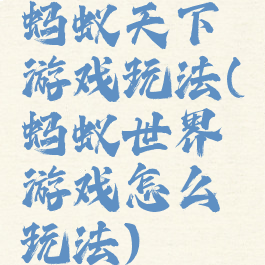 蚂蚁天下
游戏玩法(
蚂蚁世界
游戏怎么
玩法)